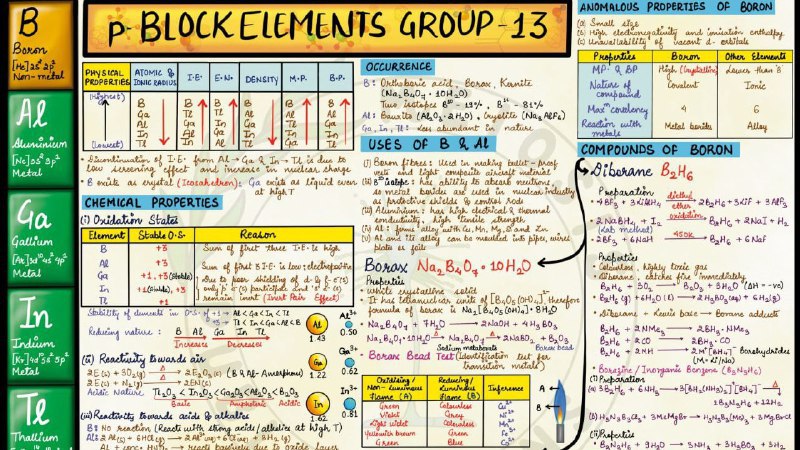 p-BLOCK ELEMENTS GROUP-13
B
Boron
[He]2s² 2p¹
Non-metal
Al
Aluminium
[Ne]3s² 3p¹
Metal
Ga
Gallium
[Ar]3d¹⁰ 4s² 4p¹
Metal
In
Indium
[Kr]4d¹⁰ 5s² 5p¹
Metal
Tl
Thallium
PHYSICAL PROPERTIES | ATOMIC & IONIC RADIUS | I·E· | E·N· | DENSITY | M·P· | B·P·
(Highest)
(Lowest)
• Discontinuation of I·E· from Al → Ga & In → Tl is due to
low screening effect and increase in nuclear charge
• B exists as crystal (Icosahedron); Ga exists as liquid even
at high T
CHEMICAL PROPERTIES
(i) Oxidation States
Element | Stable O.S. | Reason
B | +3 | Sum of first three I·E· is high
Al | +3
Ga | +1, +3 (Stable)
In | +1 (Stable), +3
Tl | +1
remain inert (Inert Pair Effect)
Stability of elements in O.S. of +1 → Al < Ga < In < Tl
Reducing nature: B Al Ga In Tl
Increases Decreases
Al 1.43
Al³⁺ 0.50
Ga 1.22
Ga³⁺ 0.62
In 1.62
In³⁺ 0.81
(ii) Reactivity towards air
2E(s) + 3O₂(g) → 2E₂O₃(s) (B & Al = Amorphous)
2E(s) + N₂(g) → 2EN(s)
Acidic Nature Tl₂O₃ < In₂O₃ < Ga₂O₃ < Al₂O₃ < B₂O₃
Basic Amphoteric Acidic
(iii) Reactivity towards acids & alkalies
B: No reaction (Reacts with strong acids/alkalies at high T)
OCCURRENCE
B: Orthoboric acid, Borax, Kernite
(Na₂B₄O₇·10H₂O)
Two isotopes B¹⁰ = 19%, B¹¹ = 81%
Al: Bauxite (Al₂O₃·2H₂O), Cryolite (Na₃AlF₆)
Ga, In, Tl: less abundant in nature
USES OF B & Al
(i) Boron fibres: Used in making bullet-proof
vests and light composite aircraft material
(ii) B¹⁰ isotope: has ability to absorb neutrons
so metal borides are used in nuclear industry
as protective shields & control rods
(iii) Aluminium: has high electrical & thermal
conductivity, high tensile strength
(iv) Al: forms alloy with Cu, Mn, Mg, Si and Zn
(v) Al and its alloy can be moulded into pipe, wires
plate or foils
Borax Na₂B₄O₇·10H₂O
Properties
• White crystalline solid
• It has tetranuclear units of [B₄O₅(OH)₄]²⁻, therefore
formula of borax is Na₂[B₄O₅(OH)₄]·8H₂O
• Na₂B₄O₇ + 7H₂O → 2NaOH + 4H₃BO₃
Sodium metaborate Borax bead
• Borax Bead Test (Identification test for
transition metals)
Oxidising/ Non-Luminous Flame (A) | Reducing/ Luminous Flame (B) | Inference
Green | Colourless
Violet | Grey
Light violet | Colourless
Yellowish brown | Green
Green | Blue
A
B
ANOMALOUS PROPERTIES OF BORON
(a) Small size
(b) High electronegativity and ionisation enthalpy
(c) Unavailability of vacant d-orbitals
Properties | Boron | Other Elements
MP· & BP | High (Crystalline) | Lower than B
Nature of compound | Covalent | Ionic
Maxᵐ covalency | 4 | 6
Reaction with metals | Metal borides | Alloy
COMPOUNDS OF BORON
Diborane B₂H₆
Preparation
• 4BF₃ + 3LiAlH₄ diethyl ether → 2B₂H₆ + 3LiF + 3AlF₃
• 2NaBH₄ + I₂ oxidation → B₂H₆ + 2NaI + H₂
(Lab method)
• 2BF₃ + 6NaH 450K → B₂H₆ + 6NaF
Properties
• Colourless, highly toxic gas
• Diborane, catches fire immediately
B₂H₆ + 3O₂ → B₂O₃ + 3H₂O (ΔH = -ve)
B₂H₆(g) + 6H₂O(l) → 2H₃BO₃(aq) + 6H₂(g)
• Diborane + Lewis base → Borane adducts
B₂H₆ + 2NMe₃ → 2BH₃·NMe₃
B₂H₆ + 2CO → 2BH₃·CO
B₂H₆ + 2MH → 2M⁺[BH₄]⁻ Borohydrides
(M = Li/Na)
• Borazine / Inorganic Benzene (B₃N₃H₆)
(i) Preparation
(a) 3B₂H₆ + 6NH₃ → 3[BH₂(NH₃)₂]⁺[BH₄]⁻
2B₃N₃H₆ + 12H₂
(ii) Properties